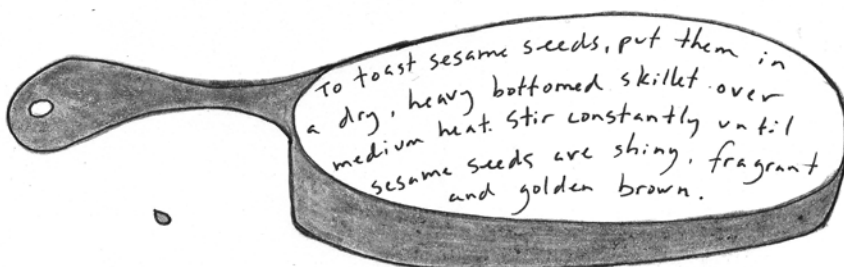 To toast sesame seeds, put them in
a dry, heavy bottomed skillet over
medium heat. Stir constantly until
sesame seeds are shiny, fragrant
and golden brown.